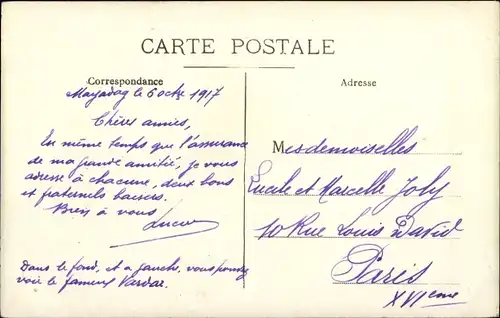 CARTE POSTALE
Correspondance
Adresse
Mayadag le 6 octre 1917
Chères amies,
En même temps que l'assurance
de ma grande amitié, je vous
adresse à chacune, deux bons
et fraternels baisers.
Bien à vous
Lucien
Dans le fond, et à gauche, vous pouvez
voir le fameux Vardar.
Mesdemoiselles
Lucile et Marcelle Joly
10 Rue Louis David
Paris
XVIeme